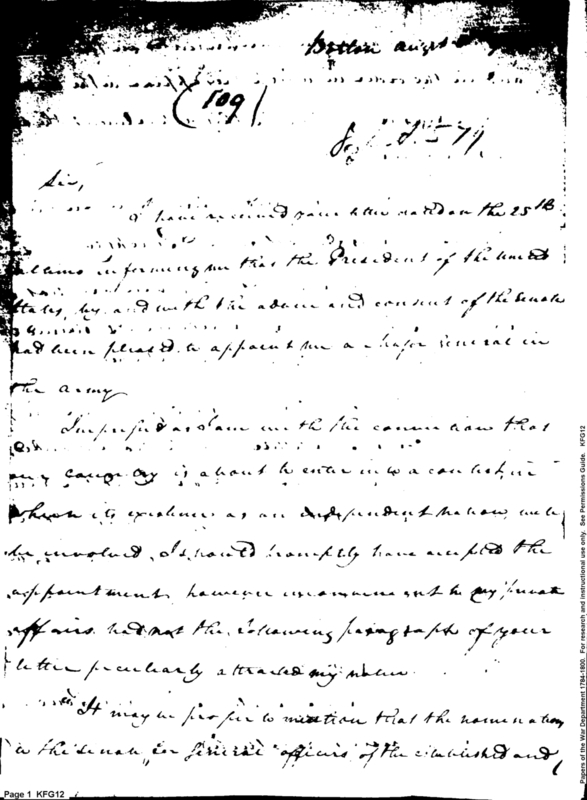 Boston Augst
(109)
Sir,
I have received your letter dated on the 25th
ultimo informing me that the President of the United
States, by and with the advice and consent of the Senate
had been pleased to appoint me a Major General in
the Army
Impressed as I am with the conviction that
my country is about to enter into a contest, in
which its existence as an independent nation will
be involved, I should promptly have accepted the
appointment, however inconvenient to my private
affairs had not the following paragraph of your
letter peculiarly attracted my notice
"It may be proper to mention that the nomination
to the Senate "for General officers" of the established and
Page 1 KFG12
Papers of the War Department 1784-1800. For research and instructional use only. See Permissions Guide. KFG12